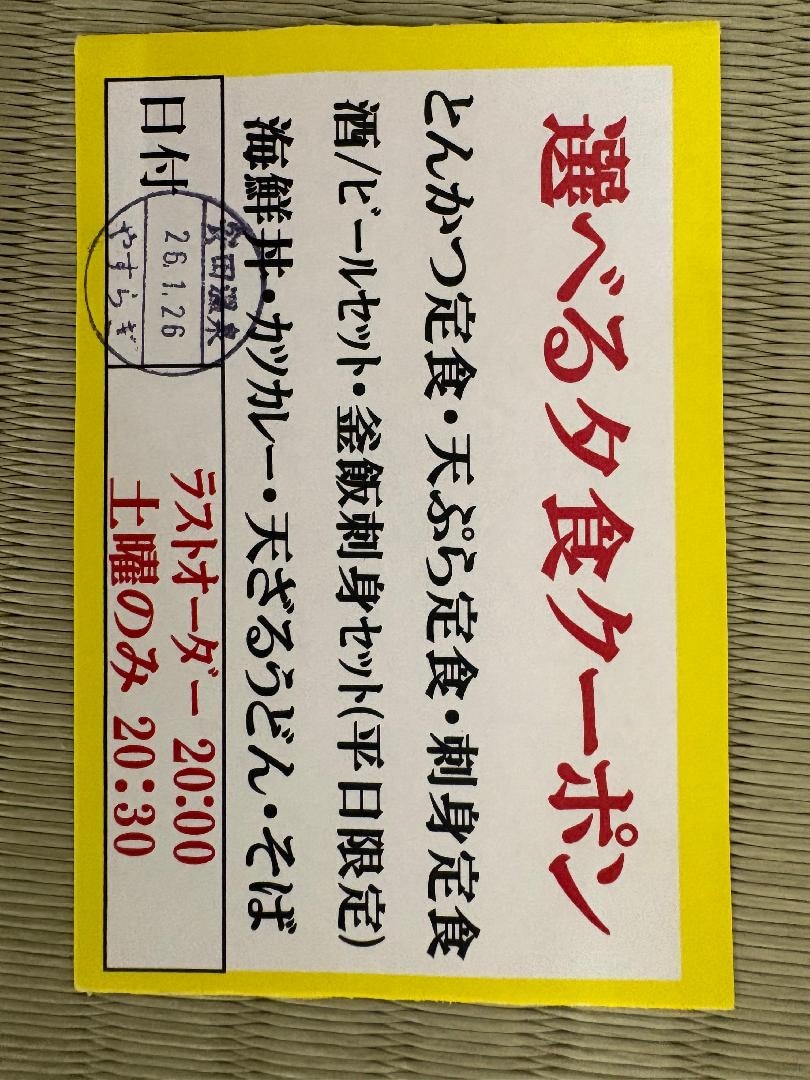 選べる夕食クーポン
とんかつ定食・天ぷら定食・刺身定食
酒/ビールセット・釜飯刺身セット(平日限定)
海鮮丼・カツカレー・天ざるうどん・そば
日付
田温泉
26.1.26
やすらぎ
ラストオーダー 20:00
土曜のみ 20:30